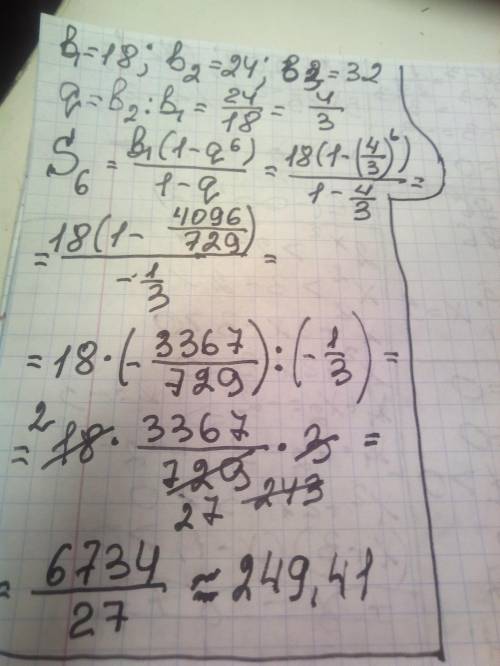 b₁=18; b₂=24; b₃=32
q=b₂:b₁=24/18=4/3
S₆=b₁(1-q⁶)/1-q=18(1-(4/3)⁶)/1-4/3=
=18(1-4096/729)/-1/3=
=18·(-3367/729):(-1/3)=
=2 18·3367/729·3=
27 243
=6734/27≈249,41